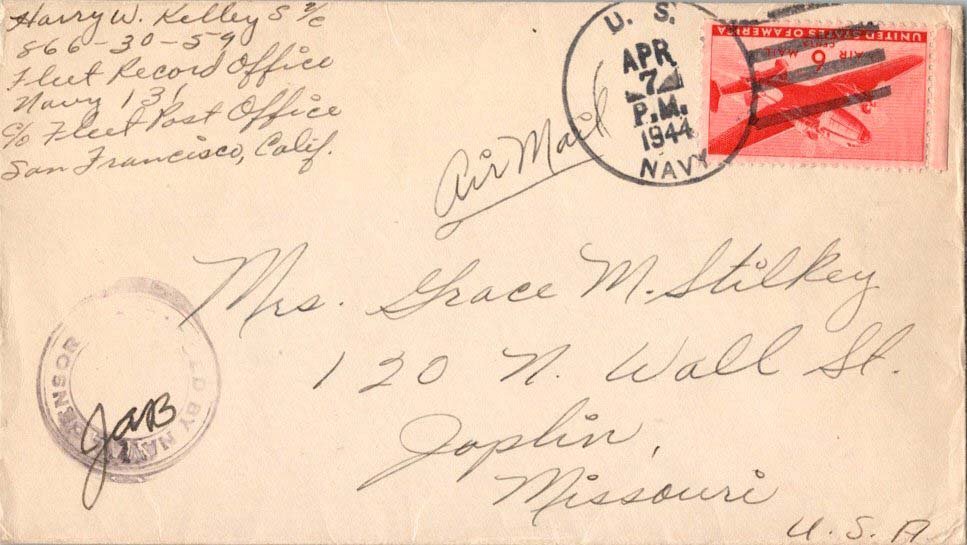 Harry W. Kelley S 2/c
866-30-59
Fleet Record Office
Navy 131
c/o Fleet Post Office
San Francisco, Calif.
U. S.
APR
7
P.M.
1944
NAVY
UNITED STATES OF AMERICA
6
CENTS
AIR MAIL
Air Mail
Mrs. Grace M. Stilkey
120 N. Wall St.
Joplin,
Missouri
U. S. A
ED BY NAVAL CENSOR
JaB